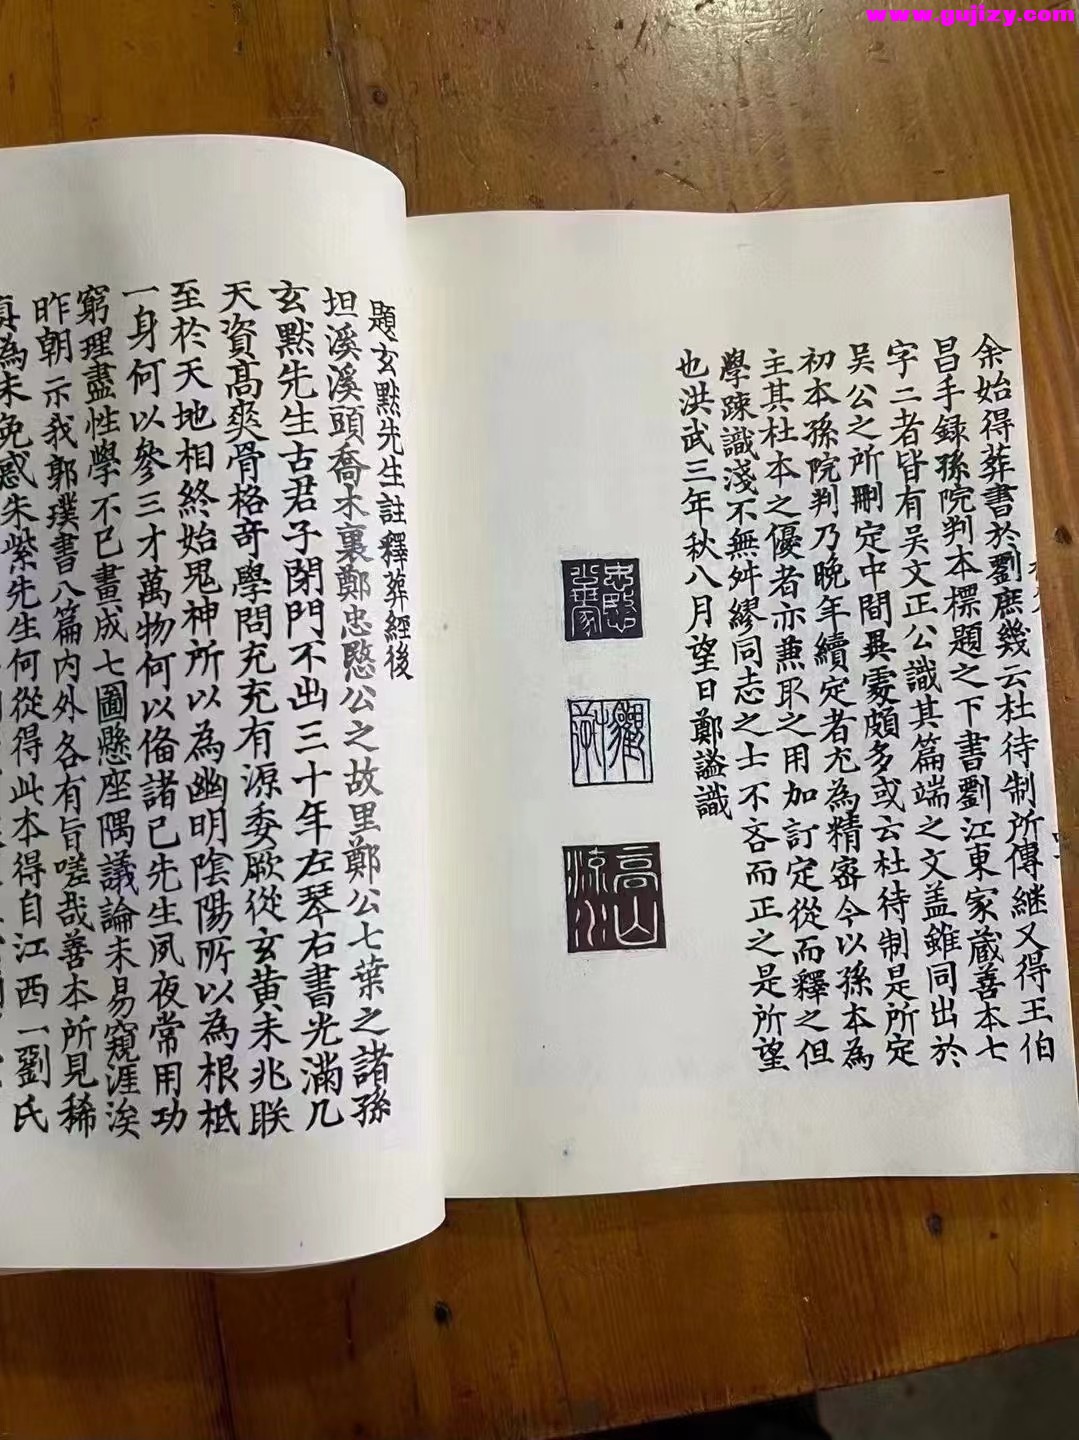 www.gujizy.com
余始得葬書於劉庶幾云杜待制所傳継又得王伯
昌手録孫院判本標題之下書劉江東家蔵善本七
字二者皆有吴文正公識其篇端之文盖雖同出於
吴公之所刪定中間異處頗多或云杜待制是所定
初本孫院判乃晚年續定者尤為精宻今以孫本為
主其杜本之優者亦兼取之用加訂定從而釋之但
學踈識淺不無舛繆同志之士不吝而正之是所望
也洪武三年秋八月望日鄭謐識
高山流水
題玄黙先生註釋葬經後
坦溪溪頭喬木裏鄭忠愍公之故里鄭公七葉之諸孫
玄黙先生古君子閉門不出三十年左琴右書光滿几
天資髙爽骨格竒學問充充有源委厥從玄黄未兆眹
至於天地相終始鬼神所以為幽明陰陽所以為根柢
一身何以參三才萬物何以俻諸己先生夙夜常用功
窮理盡性學不已畫成七圖懸座隅議論未易窺涯涘
昨朝示我郭璞書八篇内外各有旨嗟哉善本所見稀
真為未免惑朱紫先生何從得此本得自江西一劉氏